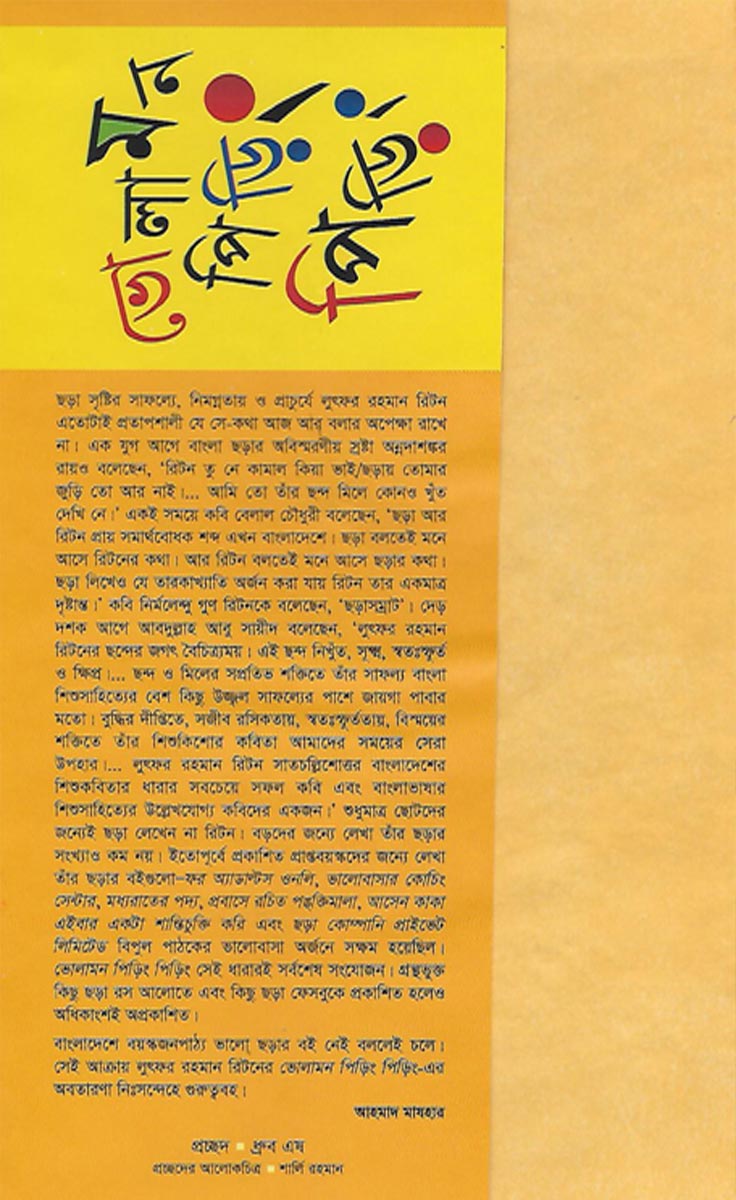 ভোলামন
পিড়িং
পিড়িং
ছড়া সৃষ্টির সাফল্যে, নিমগ্নতায় ও প্রাচুর্যে লুৎফর রহমান রিটন
এতোটাই প্রতাপশালী যে সে-কথা আজ আর্ বলার অপেক্ষা রাখে
না। এক যুগ আগে বাংলা ছড়ার অবিস্মরণীয় স্রষ্টা অন্নদাশঙ্কর
রায়ও বলেছেন, ‘রিটন তু নে কামাল কিয়া ভাই/ছড়ায় তোমার
জুড়ি তো আর নাই।... আমি তো তাঁর ছন্দ মিলে কোনও খুঁত
দেখি নে।’ একই সময়ে কবি বেলাল চৌধুরী বলেছেন, ‘ছড়া আর
রিটন প্রায় সমার্থবোধক শব্দ এখন বাংলাদেশে। ছড়া বলতেই মনে
আসে রিটনের কথা। আর রিটন বলতেই মনে আসে ছড়ার কথা।
ছড়া লিখেও যে তারকাখ্যাতি অর্জন করা যায় রিটন তার একমাত্র
দৃষ্টান্ত।’ কবি নির্মলেন্দু গুণ রিটনকে বলেছেন, ‘ছড়াসম্রাট’। দেড়
দশক আগে আবদুল্লাহ আবু সায়ীদ বলেছেন, ‘লুৎফর রহমান
রিটনের ছন্দের জগৎ বৈচিত্র্যময়। এই ছন্দ নিখুঁত, সূক্ষ্ম, স্বতঃস্ফূর্ত
ও ক্ষিপ্র।... ছন্দ ও মিলের সপ্রতিভ শক্তিতে তাঁর সাফল্য বাংলা
শিশুসাহিত্যের বেশ কিছু উজ্জ্বল সাফল্যের পাশে জায়গা পাবার
মতো। বুদ্ধির দীপ্তিতে, সজীব রসিকতায়, স্বতঃস্ফূর্ততায়, বিস্ময়ের
শক্তিতে তাঁর শিশুকিশোর কবিতা আমাদের সময়ের সেরা
উপহার।... লুৎফর রহমান রিটন সাতচল্লিশোত্তর বাংলাদেশের
শিশুকবিতার ধারার সবচেয়ে সফল কবি এবং বাংলাভাষার
শিশুসাহিত্যের উল্লেখযোগ্য কবিদের একজন।’ শুধুমাত্র ছোটদের
জন্যেই ছড়া লেখেন না রিটন। বড়দের জন্যে লেখা তাঁর ছড়ার
সংখ্যাও কম নয়। ইতোপূর্বে প্রকাশিত প্রাপ্তবয়স্কদের জন্যে লেখা
তাঁর ছড়ার বইগুলো–ফর অ্যাডাল্টস ওনলি, ভালোবাসার কোচিং
সেন্টার, মধ্যরাতের পদ্য, প্রবাসে রচিত পঙ্‌ক্তিমালা, আসেন কাকা
এইবার একটা শান্তিচুক্তি করি এবং ছড়া কোম্পানি প্রাইভেট
লিমিটেড বিপুল পাঠকের ভালোবাসা অর্জনে সক্ষম হয়েছিল।
ভোলামন পিড়িং পিড়িং সেই ধারারই সর্বশেষ সংযোজন। গ্রন্থভুক্ত
কিছু ছড়া রস আলোতে এবং কিছু ছড়া ফেসবুকে প্রকাশিত হলেও
অধিকাংশই অপ্রকাশিত।
বাংলাদেশে বয়স্কজনপাঠ্য ভালো ছড়ার বই নেই বললেই চলে।
সেই আক্রায় লুৎফর রহমান রিটনের ভোলামন পিড়িং পিড়িং-এর
অবতারণা নিঃসন্দেহে গুরুত্ববহ।
আহমাদ মাযহার
প্রচ্ছদ ▪ ধ্রুব এষ
প্রচ্ছদের আলোকচিত্র ▪ শার্লি রহমান